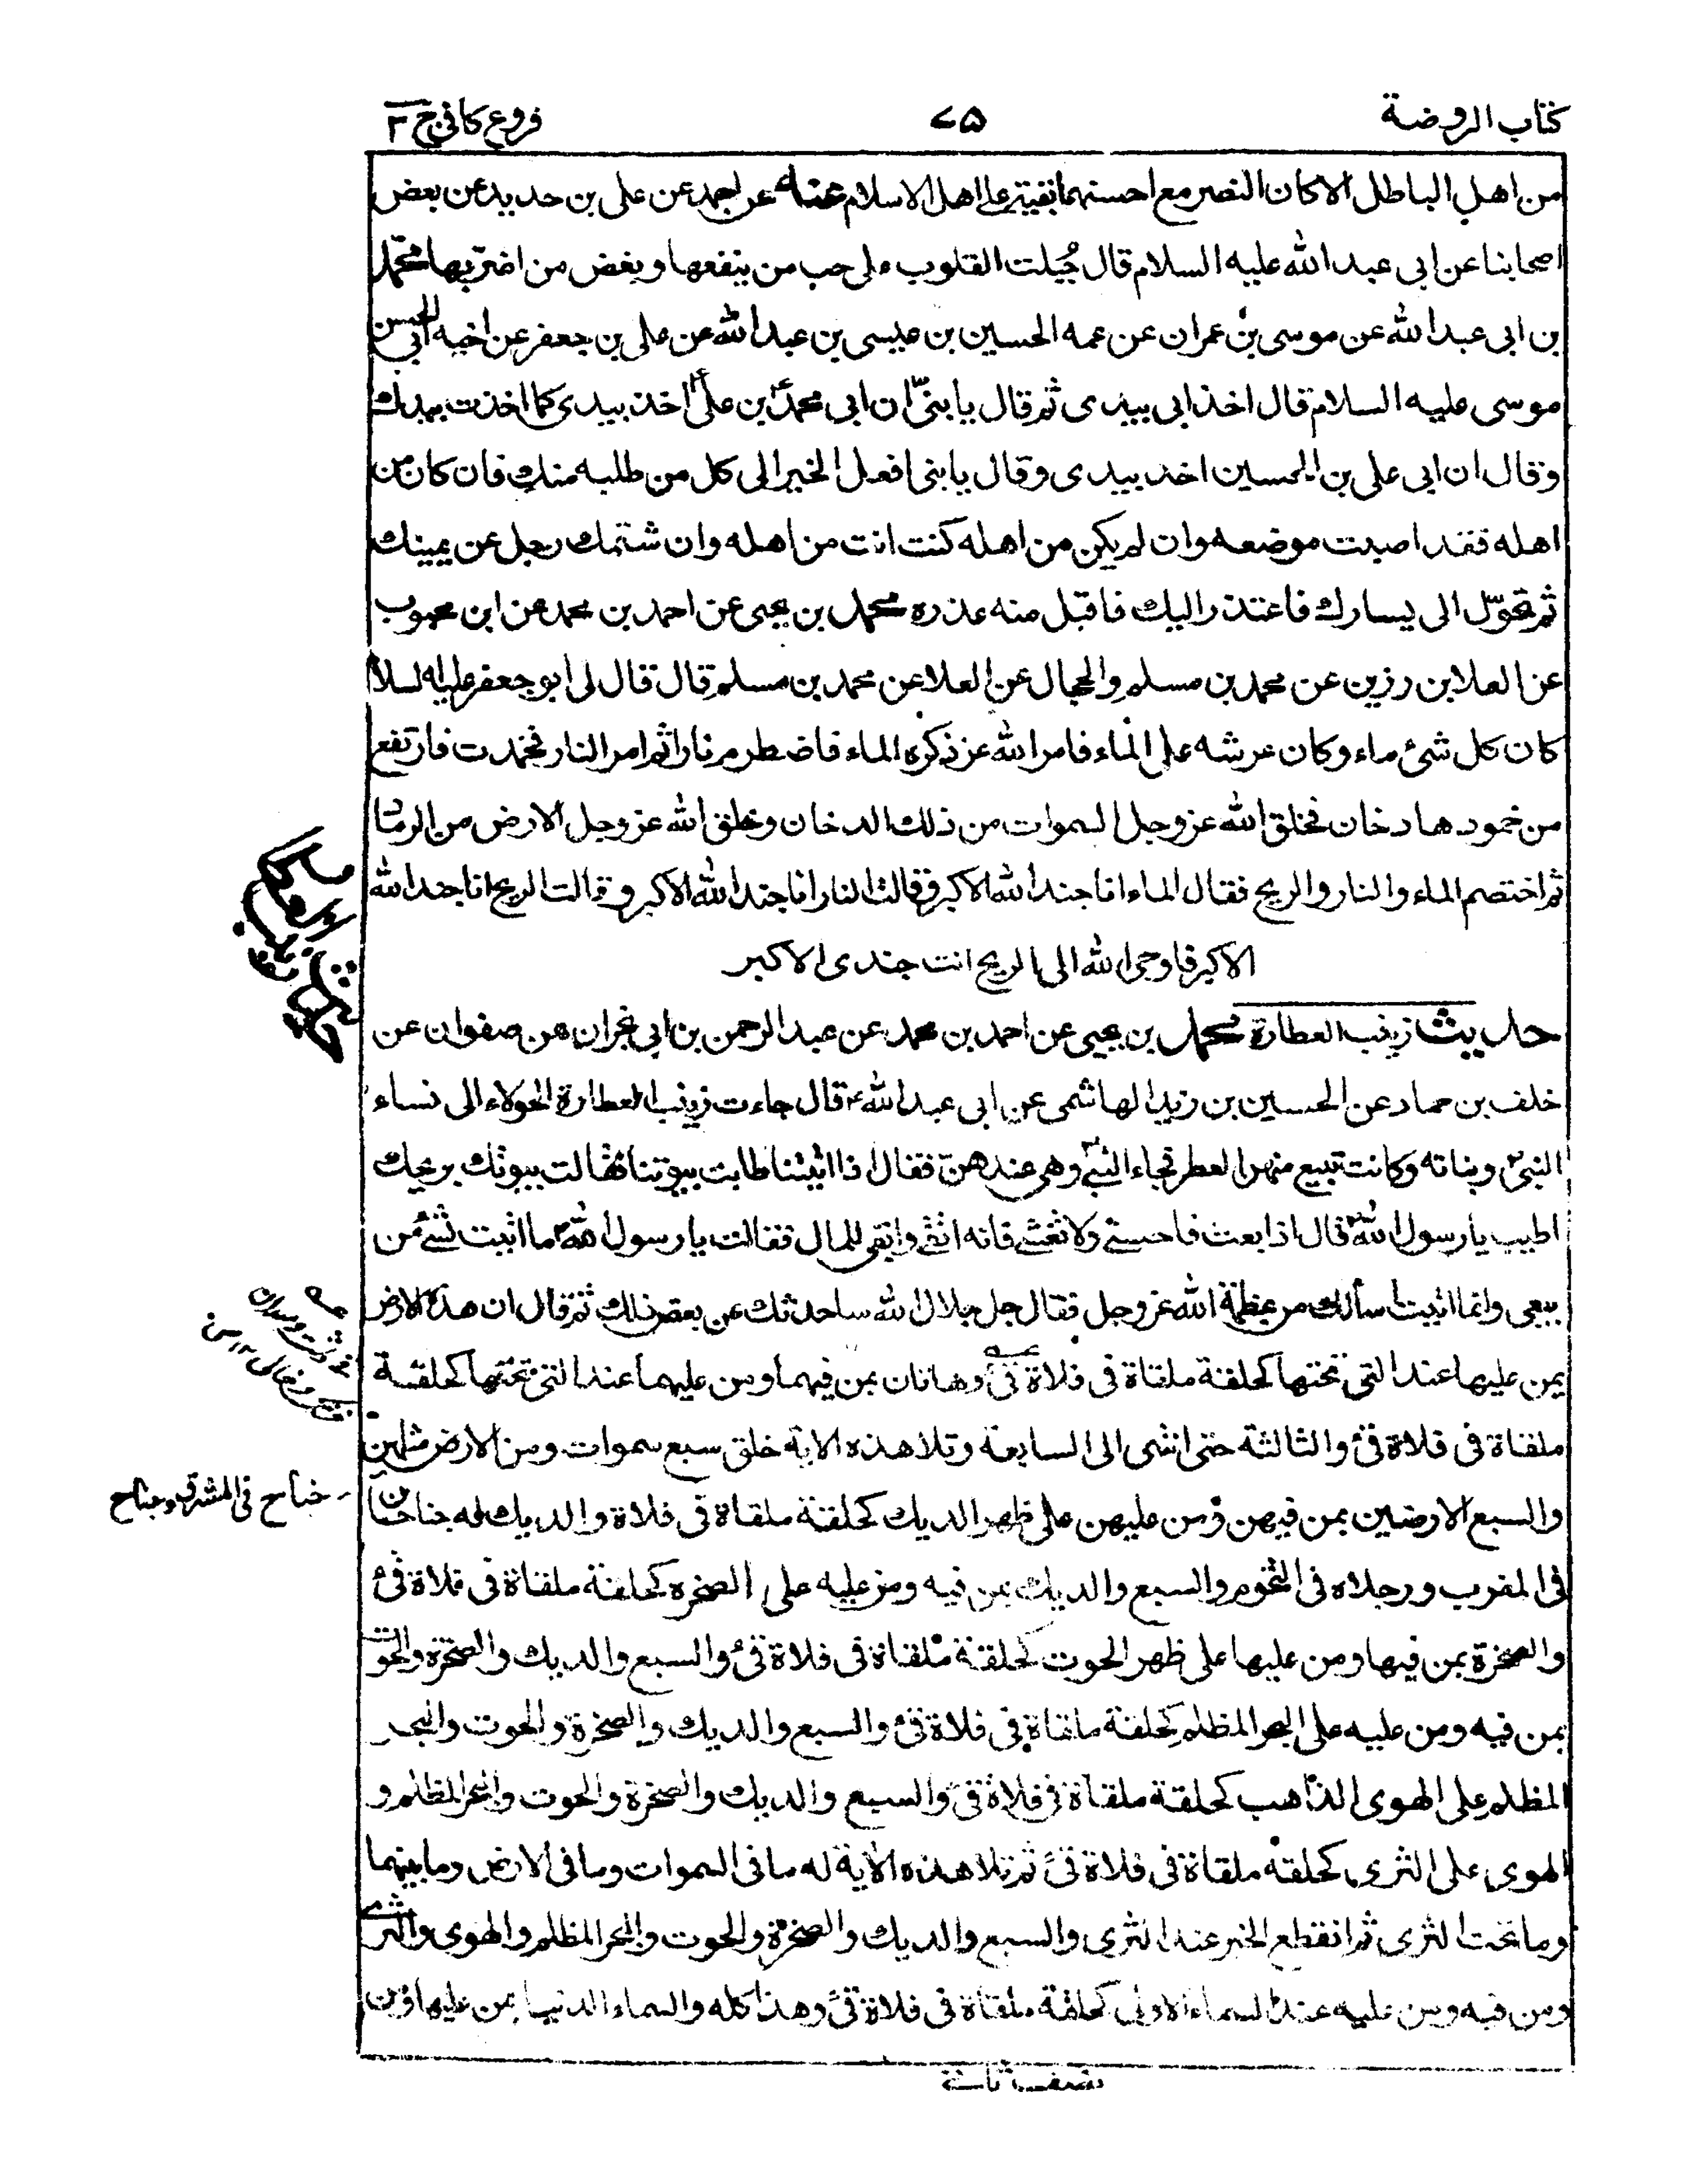 كتاب الروضة
۷۵
فروع كافي ج ۳
من اهل الباطل الا كان النصر مع احسنهما بقية على اهل الاسلام عنه عن احمد عن على بن حديد عن بعض
اصحابنا عن ابى عبد الله عليه السلام قال جُبلت القلوب على حب من ينفعها و بغض من اضرّ بها محمّد
بن ابى عبد الله عن موسى بن عمران عن عمه الحسين بن عيسى بن عبد الله عن على بن جعفر عن اخيه ابي الحسن
موسى عليه السلام قال اخذ ابى بيدى ثم قال يا بنىّ ان ابى محمد بن علىؑ اخذ بيدى كما اخذت بيدك
و قال ان ابى على بن الحسين اخذ بيدى و قال يا بنى افعل الخير الى كل من طلبه منك فان كان من
اهله فقد اصبت موضعه و ان لم يكن من اهله كنت انت من اهله و ان شتمك رجل عن يمينك
ثم تحوّل الى يسارك فاعتذر اليك فاقبل منه عذره محمد بن يحيى عن احمد بن محمد عن ابن محبوب
عن العلا بن رزين عن محمد بن مسلم والحجال عن العلا عن محمد بن مسلم قال قال لى ابو جعفر عليه السلا
كان كل شئ ماء و كان عرشه على الماء فامر الله عز ذكره الماء فاضطرم نارا ثم امر النار فخمدت فارتفع
من خمودها دخان فخلق الله عز وجل السموات من ذلك الدخان و خلق الله عز وجل الارض من الرماد
ثم اختصم الماء والنار والريح فقال الماء انا جند الله الاكبر وقالت النار انا جند الله الاكبر و قالت الريح انا جند الله
الاكبر فاوحى الله الى الريح انت جندى الاكبر
حديث زينب العطارة محمد بن يحيى عن احمد بن محمد عن عبد الرحمن بن ابى نجران عن صفوان عن
خلف بن حماد عن الحسين بن زيد الهاشمى عن ابى عبد اللهؑ قال جاءت زينب العطارة الحولاء الى نساء
النبىؐ و بناته و كانت تبيع منهن العطر فجاء النبىؐ وهى عندهن فقال اذا اتيتنا طابت بيوتنا فقالت بيوتك بريحك
اطيب يا رسول اللهؐ قال اذا بعت فاحسنى ولا تغشى فانه اتقى وابقى للمال فقالت يا رسول اللهؐ ما اتيت بشئ من
بيعى وانما اتيت اسألك عن عظمة الله عز وجل فقال جل جلال الله ساحدثك عن بعض ذلك ثم قال ان هذه الارض
بمن عليها عند التى تحتها كحلقة ملقاة فى فلاة قى وهاتان بمن فيهما ومن عليهما عند التى تحتها كحلقة
ملقاة فى فلاة قئ والثالثة حتى انتهى الى السابعة و تلا هذه الاية خلق سبع سموات و من الارض مثلهن
والسبع الارضين بمن فيهن ومن عليهن على ظهر الديك كحلقة ملقاة فى فلاة والديك له جناحان
جناح فى المشرق وجناح
فى المغرب و رجلاه فى التخوم والسبع والديك بمن فيه ومن عليه على الصخره كحلقة ملقاة فى فلاة قئ
والصخرة بمن فيها ومن عليها على ظهر الحوت كحلقة ملقاة فى فلاة قئ والسبع والديك والصخرة والحوت
بمن فيه ومن عليه على البحر المظلم كحلقة ملقاة فى فلاة قئ والسبع والديك والصخرة والحوت والبحر
المظلم على الهوى الذاهب كحلقة ملقاة فى فلاة قى والسبع والديك والصخرة والحوت والبحر المظلم و
الهوى على الثرى كحلقة ملقاة فى فلاة قى ثم تلا هذه الاية له ما فى السموات وما فى الارض وما بينهما
وما تحت الثرى ثم انقطع الخبر عند الثرى والسبع والديك والصخرة والحوت والبحر المظلم والهوى والثرى
ومن فيه ومن عليه عند السماء الاولى كحلقة ملقاة فى فلاة قى وهذا كله والسماء الدنيا بمن عليها ومن
نصف ثانية